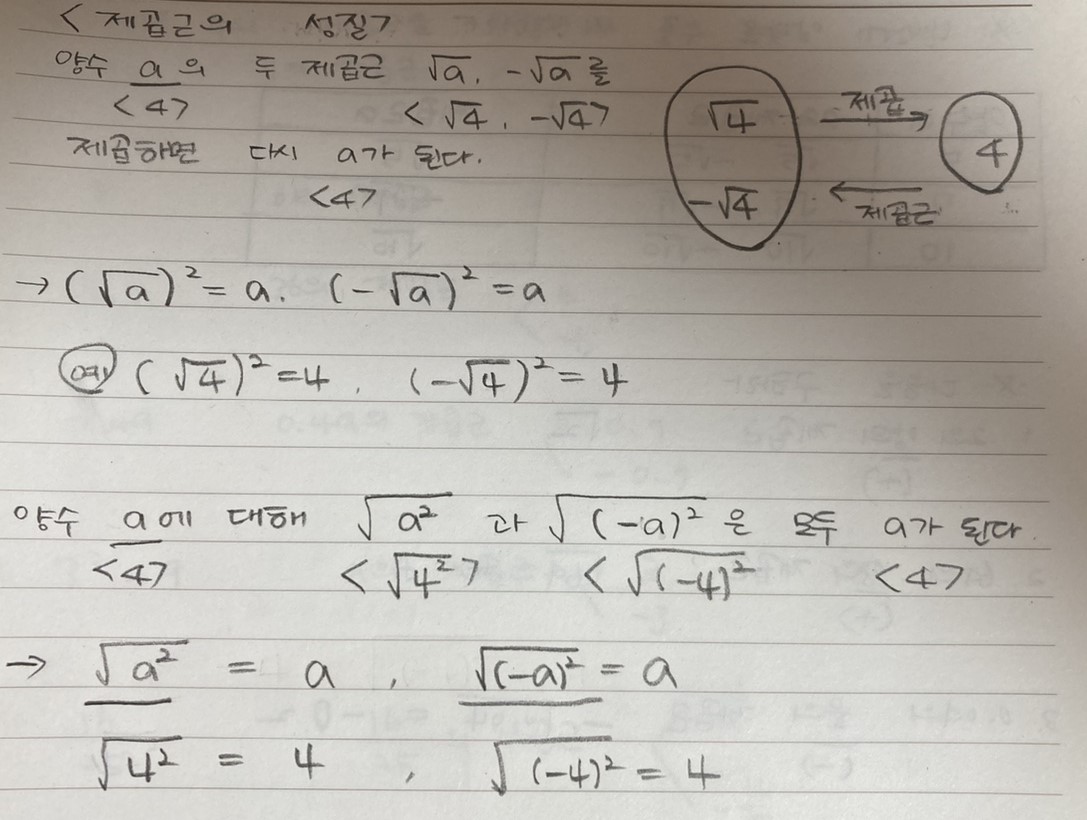 < 제곱근의 성질7
양수 a의 두 제곱근 √a, -√a를
<4> <√4, -√4>
제곱하면 다시 a가 된다.
<4>
√4 제곱 → 4
-√4 ← 제곱근
→ (√a)² = a. (-√a)² = a
예 (√4)² = 4, (-√4)² = 4
양수 a에 대해 √a² 과 √(-a)² 은 모두 a가 된다.
<4> <√4²> <√(-4)² <4>
→ √a² = a, √(-a)² = a
√4² = 4, √(-4)² = 4